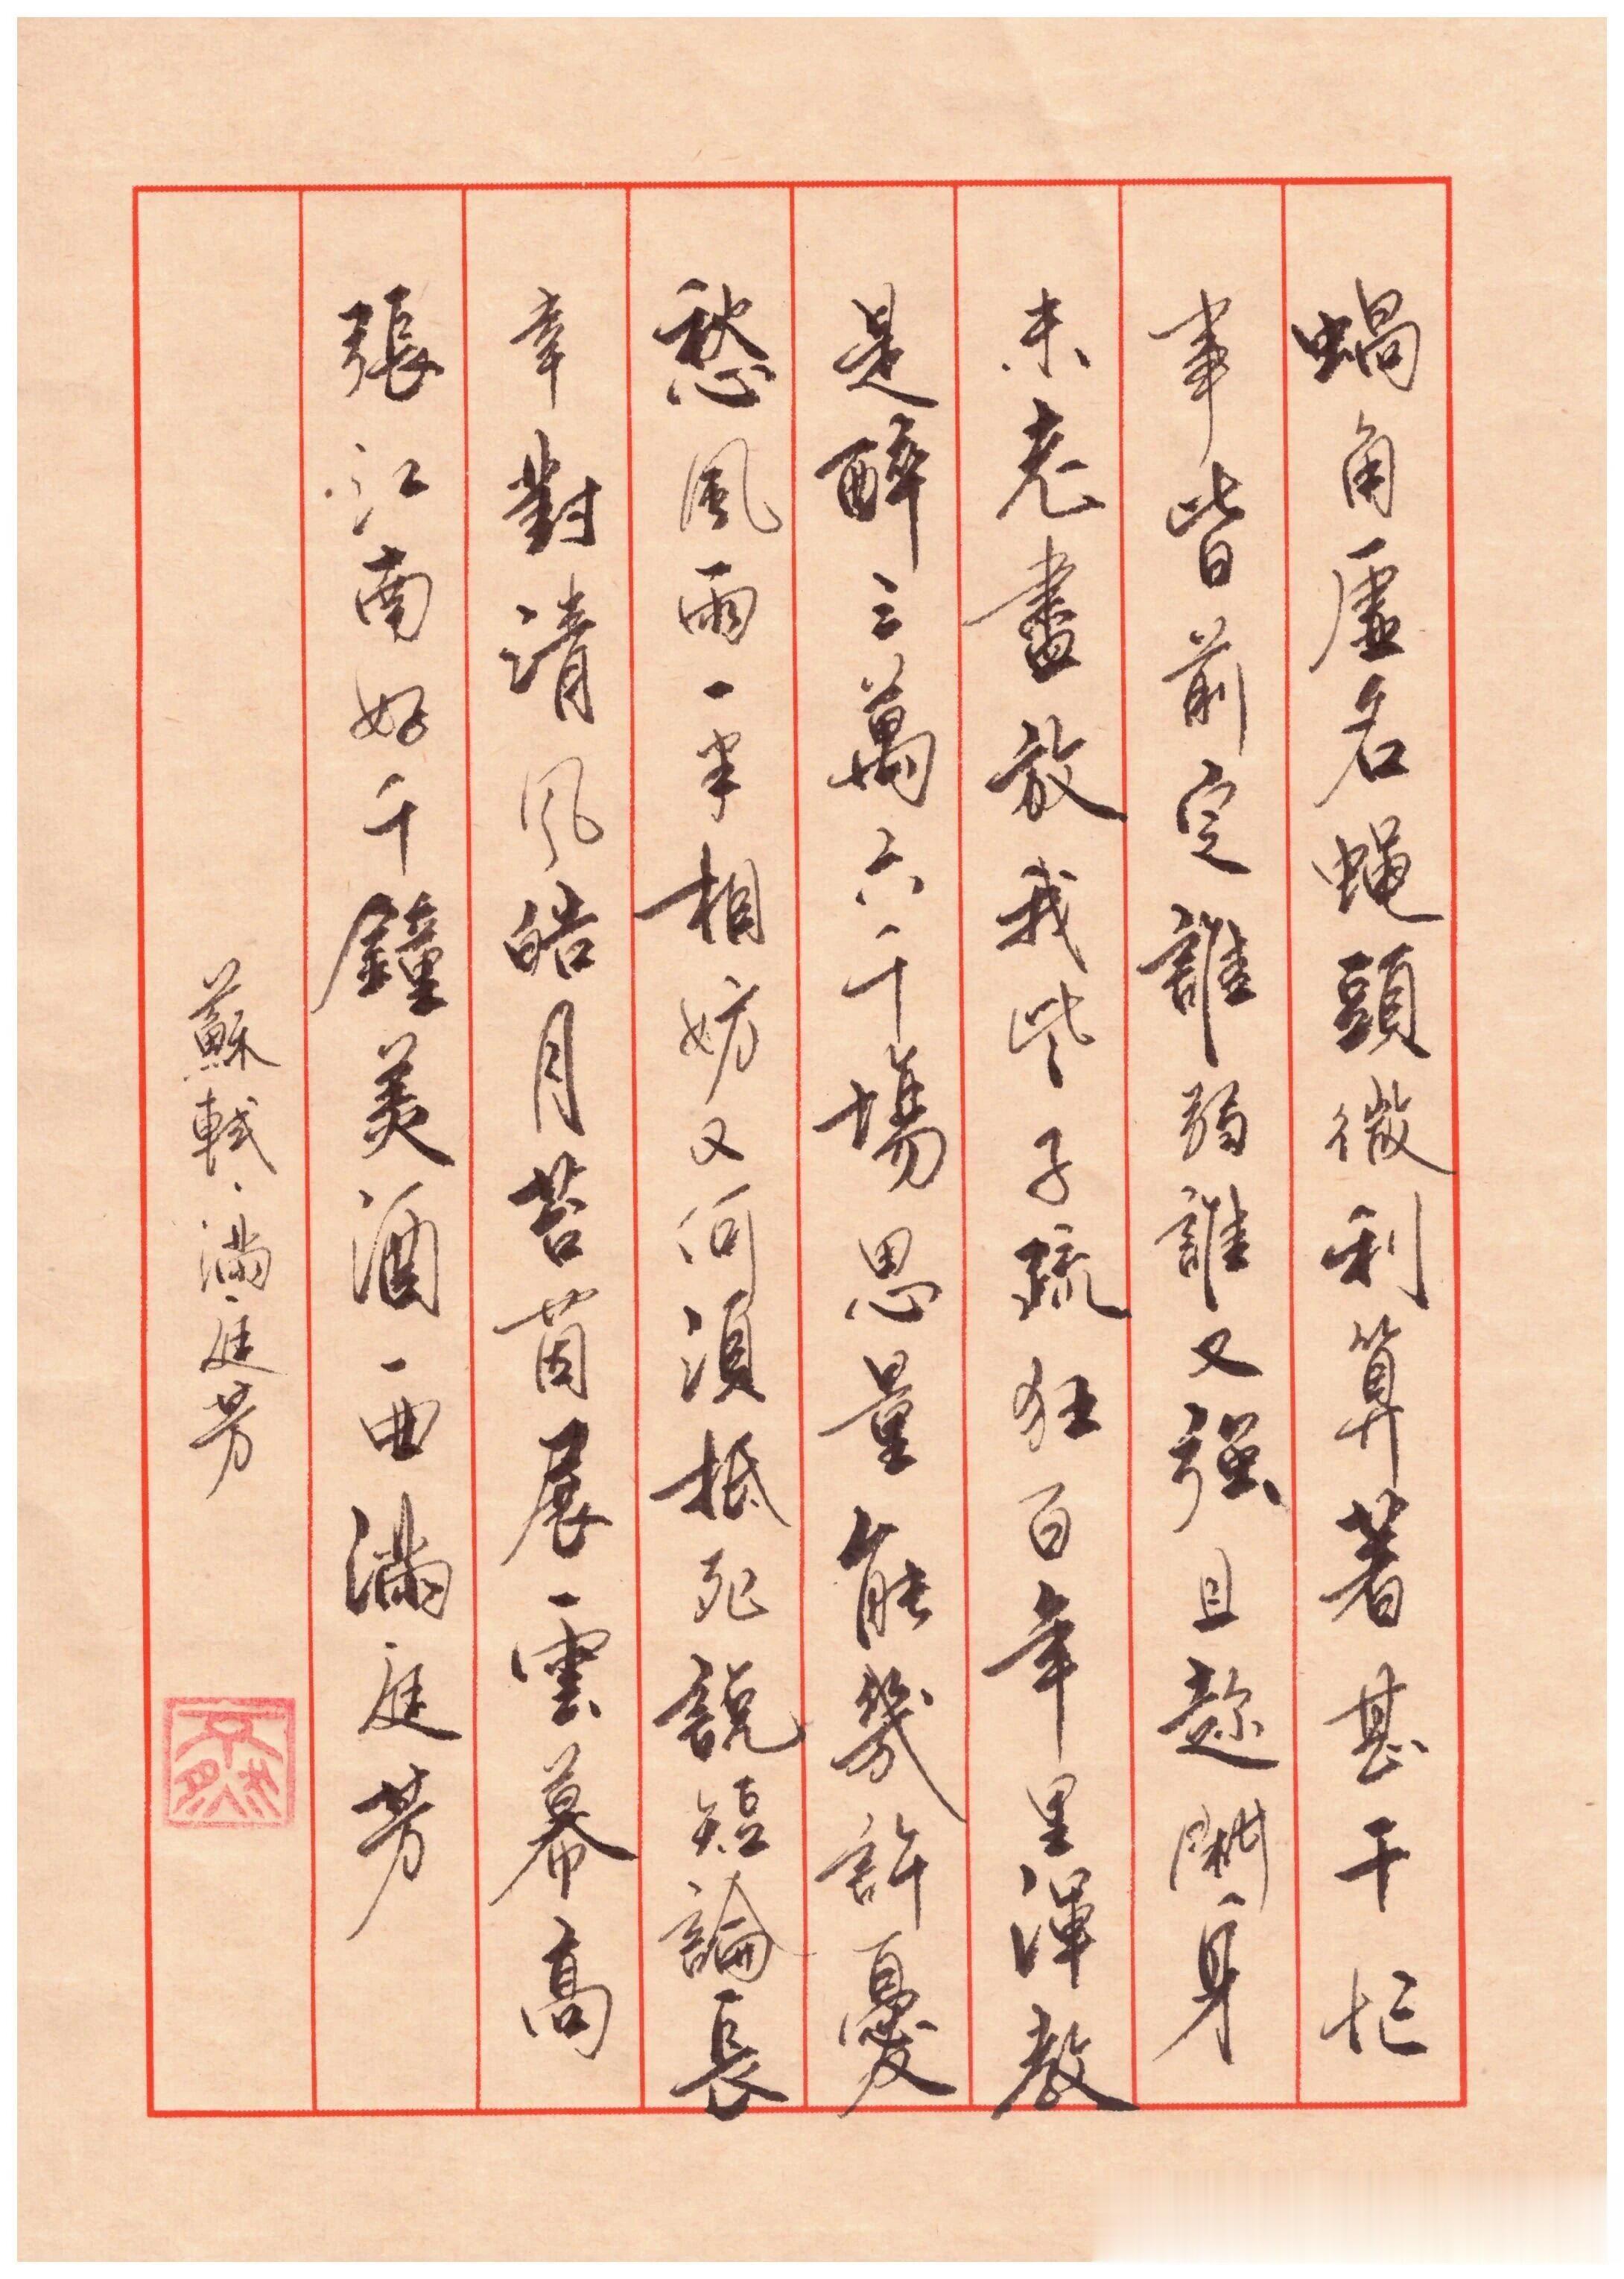 蝸角虛名蠅頭微利算著甚干忙
事皆前定誰弱誰又強且趂閒身
未老盡放我些子疏狂百年里渾教
是醉三萬六千場思量能幾許憂
愁風雨一半相妨又何須抵死說短論長
幸對清風皓月苔茵展雲幕高
張江南好千鐘美酒一曲滿庭芳
蘇軾·滿庭芳